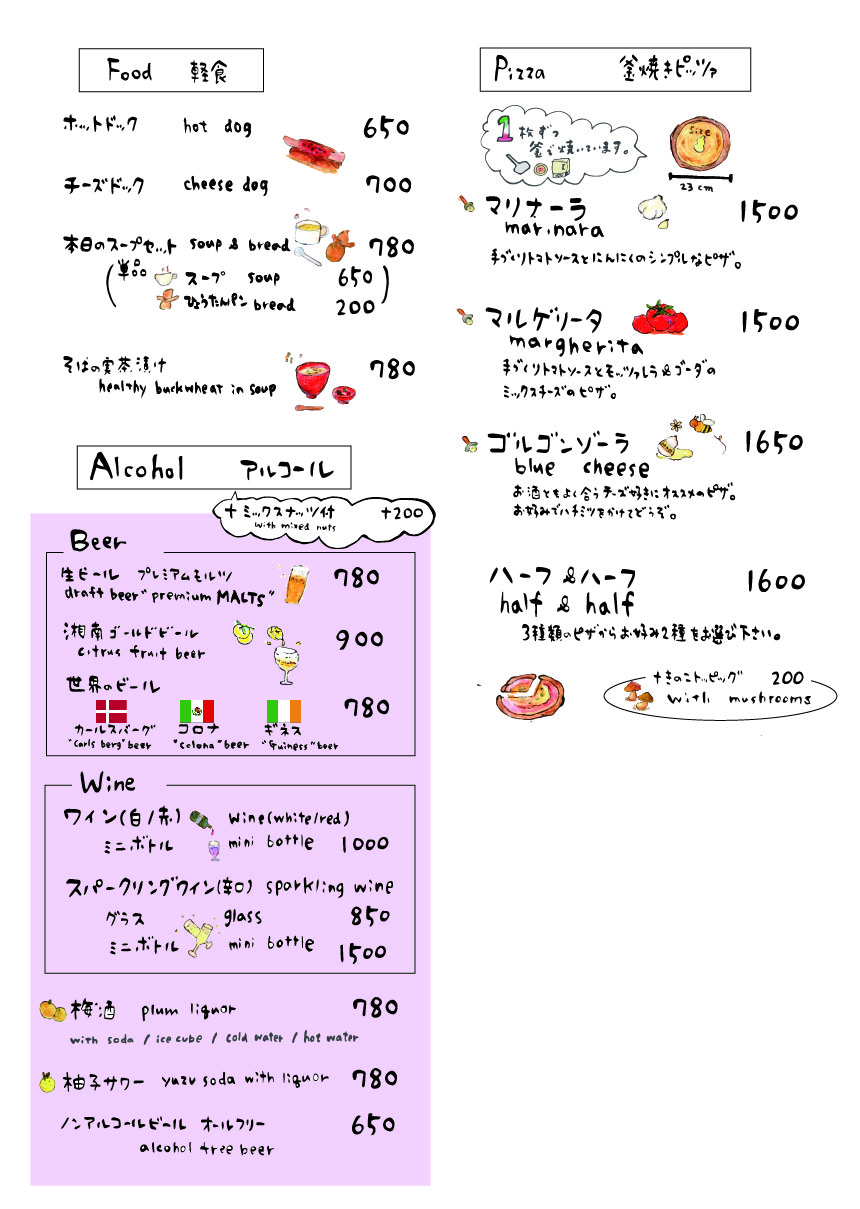 Food 軽食
ホットドック hot dog 650
チーズドック cheese dog 700
本日のスープセット soup & bread 780
単品 スープ soup 650
ひょうたんパン bread 200
そばの実茶漬け 780
healthy buckwheat in soup
Alcohol アルコール
+ミックスナッツ付 +200
with mixed nuts
Beer
生ビール プレミアムモルツ 780
draft beer "premium MALTS"
湘南ゴールドビール 900
citrus fruit beer
世界のビール 780
カールスバーグ コロナ ギネス
"Carls berg" beer "Colona" beer "Guiness" beer
Wine
ワイン(白/赤) wine(white/red)
ミニボトル mini bottle 1000
スパークリングワイン(辛口) sparkling wine
グラス glass 850
ミニボトル mini bottle 1500
梅酒 plum liquor 780
with soda / ice cube / cold water / hot water
柚子サワー yuzu soda with liquor 780
ノンアルコールビール オールフリー 650
alcohol free beer
Pizza 釜焼きピッツァ
1枚ずつ
釜で焼いています。
Size
23cm
マリナーラ 1500
marinara
手づくりトマトソースとにんにくのシンプルなピザ。
マルゲリータ 1500
margherita
手づくりトマトソースとモッツァレラ&ゴーダの
ミックスチーズのピザ。
ゴルゴンゾーラ 1650
blue cheese
お酒ともよく合うチーズ好きにオススメのピザ。
お好みでハチミツをかけてどうぞ。
ハーフ&ハーフ 1600
half & half
3種類のピザからお好み2種をお選び下さい。
+きのこトッピッグ 200
with mushrooms